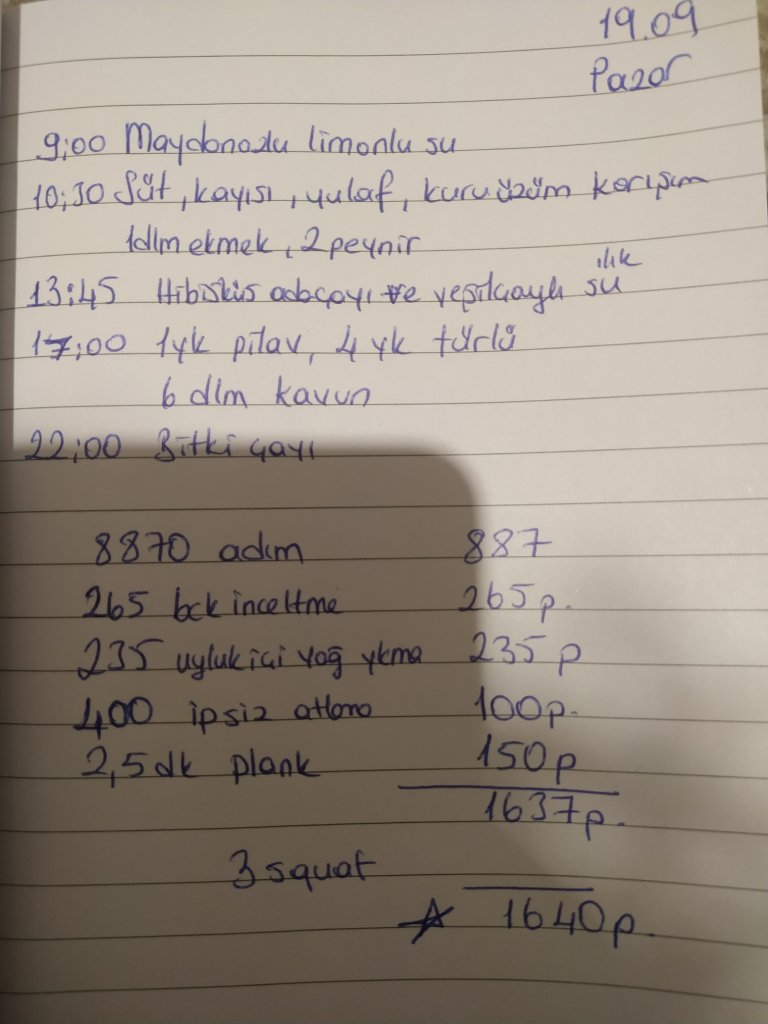 19.09
Pazar
9:00 Maydonozlu limonlu su
10:30 Süt, kayısı, yulaf, kuru üzüm karışım
1dlm ekmek, 2 peynir
13:45 Hibisküs adaçayı ve yeşilçaylı ılık su
17:00 1yk pilav, 4 yk türlü
6 dlm kavun
22:00 Bitki çayı
8870 adım 887
265 bck inceltme 265p.
235 uyluk içi yağ ykma 235 p
400 ipsiz atlama 100p.
2,5 dk plank 150p
1637p.
3 squat
1640p.